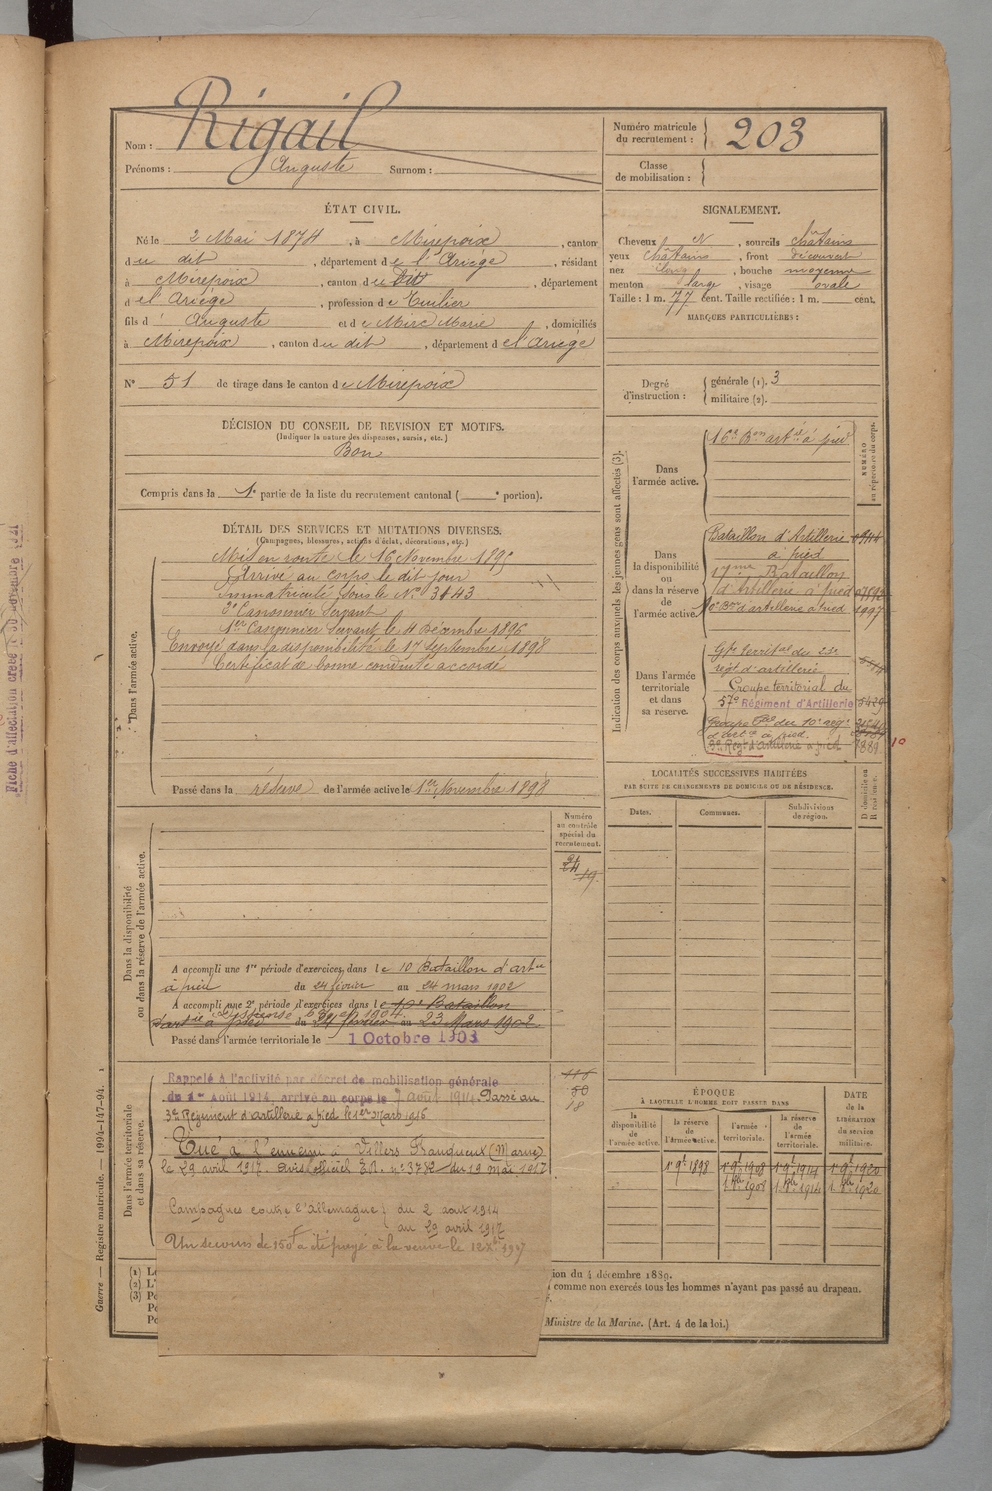 Nom : Rigail
Prénoms : Auguste Surnom :
Numéro matricule du recrutement : 203
Classe de mobilisation :
ÉTAT CIVIL.
Né le 2 Mai 1874, à Mirepoix, canton
du dit, département de l'Ariège, résidant
à Mirepoix, canton du dit, département
d el'Ariège, profession de Tuilier
fils d' Auguste et de Mirc Marie, domiciliés
à Mirepoix, canton du dit, département d el'Ariège
N° 51 de tirage dans le canton de Mirepoix
DÉCISION DU CONSEIL DE REVISION ET MOTIFS.
(Indiquer la nature des dispenses, sursis, etc.)
Bon
Compris dans la 1e partie de la liste du recrutement cantonal ( e portion).
DÉTAIL DES SERVICES ET MUTATIONS DIVERSES.
(Campagnes, blessures, actions d'éclat, décorations, etc.)
Dans l'armée active.
Mis en route le 16 Novembre 1895
Arrivé au corps le dit jour
Immatriculé sous le N° 3443
2e Canonnier Servant
1er Canonnier Servant le 4 Décembre 1896
Envoyé dans la disponibilité le 17 Septembre 1898
Certificat de bonne conduite accordé
Passé dans la réserve de l'armée active le 1er Novembre 1898
Dans la disponibilité ou dans la réserve de l'armée active.
Numéro au contrôle spécial du recrutement.
A accompli une 1re période d'exercices dans le 10 Bataillon d'artie
à pied du 24 février au 24 mars 1902
A accompli une 2e période d'exercices dans le 10e Bataillon
d'artie à pied du 24 février au 23 Mars 1902
Passé dans l'armée territoriale le 1 Octobre 1908
Dans l'armée territoriale et dans sa réserve.
Rappelé à l'activité par décret de mobilisation générale
du 1er Août 1914, arrivé au corps le 7 août 1914. Passé au
3e Régiment d'artillerie à pied le 1er Mars 1916
Tué à l'ennemi à Villers Franqueux (Marne)
le 29 avril 1917. avis officiel du 19 mai 1917
Campagnes contre l'allemagne } du 2 aout 1914
au 29 avril 1917
Un secours de 150f a été payé à la veuve le 12 Xbre 1917
SIGNALEMENT.
Cheveux N, sourcils châtains
yeux châtains, front découvert
nez long, bouche moyenne
menton large, visage ovale
Taille : 1 m. 77 cent. Taille rectifiée : 1 m. cent.
MARQUES PARTICULIÈRES :
Degré d'instruction : générale (1). 3
militaire (2).
Indication des corps auxquels les jeunes gens sont affectés (3).
NUMÉRO au répertoire du corps.
Dans l'armée active.
16e Bon artie à pied
Dans la disponibilité ou dans la réserve de l'armée active.
Bataillon d'Artillerie
à pied
17me Bataillon
d'Artillerie à pied
10e Bon d'artillerie à pied 1997
Dans l'armée territoriale et dans sa réserve.
Gpe territal du 23e
régt d'artillerie
Groupe territorial du
57e Régiment d'Artillerie
Groupe Tal du 10e rég.
d'artie à pied.
3e Regt d'Artillerie à pied 7889 10
LOCALITÉS SUCCESSIVES HABITÉES
PAR SUITE DE CHANGEMENTS DE DOMICILE OU DE RÉSIDENCE.
Dates. Communes. Subdivisions de région. D domicile ou R résidence.
ÉPOQUE
À LAQUELLE L'HOMME DOIT PASSER DANS
la disponibilité de l'armée active. la réserve de l'armée active. l'armée territoriale. la réserve de l'armée territoriale.
DATE de la LIBÉRATION du service militaire.
1er 9bre 1898 1er 9bre 1908 1er 9bre 1914 1er 9bre 1920
1er 8bre 1908 1er 8bre 1914 1er 8bre 1920
ion du 4 décembre 1889.
comme non exercés tous les hommes n'ayant pas passé au drapeau.
Ministre de la Marine. (Art. 4 de la loi.)
Guerre — Registre matricule. — 1994-147-94. 1
Fiche d'affectation créée le 30 novembre 1921